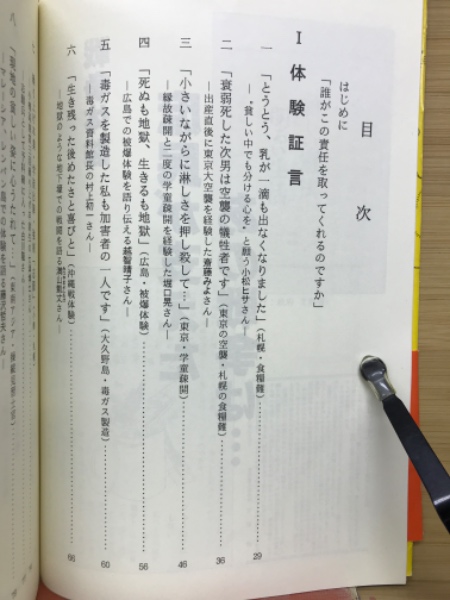 目次
はじめに
「誰がこの責任を取ってくれるのですか」
Ⅰ 体験証言
一 「とうとう、乳が一滴も出なくなりました」(札幌・食糧難)……29
―“貧しい中でも分ける心を”と願う小松ヒサさん―
二 「衰弱死した次男は空襲の犠牲者です」(東京の空襲・札幌の食糧難)……36
―出産直後に東京大空襲を経験した斎藤みよさん―
三 「小さいながらに淋しさを押し殺して…」(東京・学童疎開)……46
―縁故疎開と二度の学童疎開を経験した堀口晃さん―
四 「死ぬも地獄、生きるも地獄」(広島・被爆体験)……56
―広島での被爆体験を語り伝える越智晴子さん―
五 「毒ガスを製造した私も加害者の一人です」(大久野島・毒ガス製造)……60
―毒ガス資料館長の村上初一さん―
六 「生き残った後めたさと喜びと」(沖縄戦体験)……66
―地獄のような地下壕での戦闘を語る